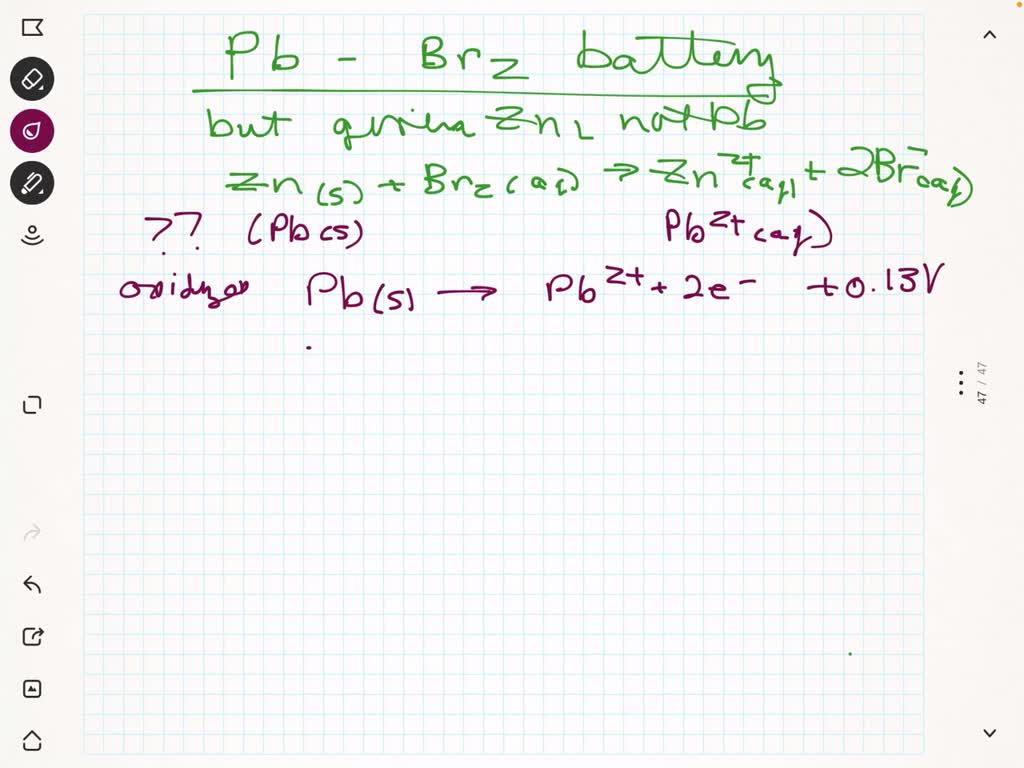 Pb - Br2 battery
but given Zn, not Pb
Zn(s) + Br2(aq) → Zn2+(aq) + 2Br-(aq)
?? (Pb(s) Pb2+(aq))
Pb(s) → Pb2+ + 2e- +0.13V
47 / 47